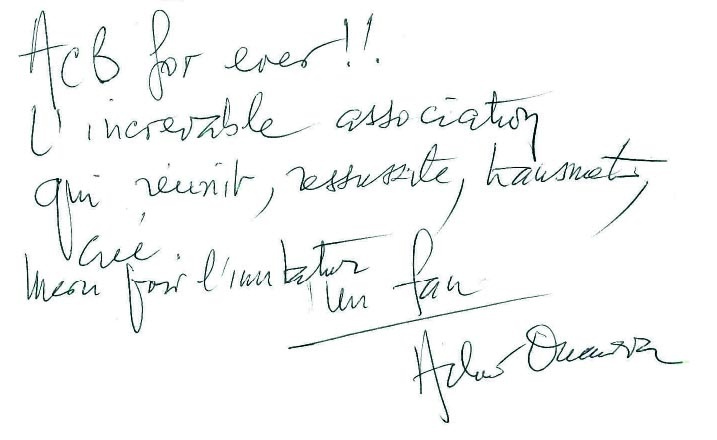 ACB for ever!!
L'increvable association
qui réunit, ressuscite, transmet,
crée
Merci pour l'invitation
Un fan